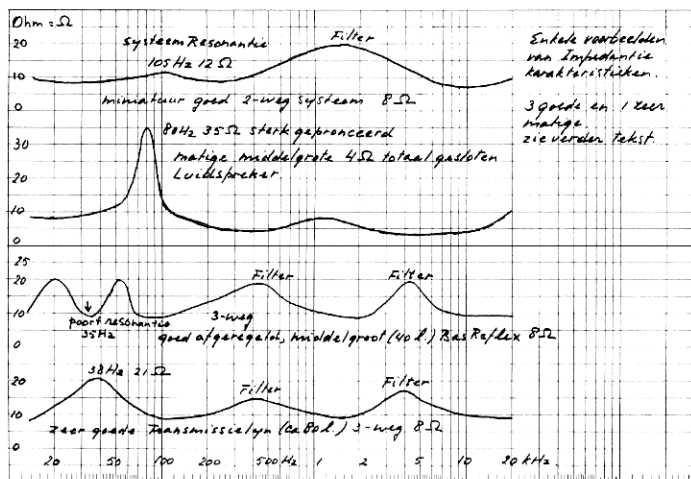 Ohm = Ω
20
10
0
Systeem Resonantie
105 Hz 12 Ω
Filter
miniatuur goed 2-weg systeem 8 Ω
Enkele voorbeelden
van Impedantie
karakteristieken.
3 goede en 1 zeer
matige.
zie verder tekst.
30
20
10
0
80Hz 35 Ω sterk geprononceerd
matige middelgrote 4 Ω totaal gesloten
Luidspreker
25
20
10
0
poort resonantie
35Hz
3-weg
Filter
Filter
goed afgeregeld, middelgroot (40 l.) Bas Reflex 8 Ω
20
10
0
38Hz 21 Ω
Filter
Filter
zeer goede Transmissielyn (ca 80 l.) 3-weg 8 Ω
20 50 100 200 500 Hz 1 2 5 10 20 kHz.